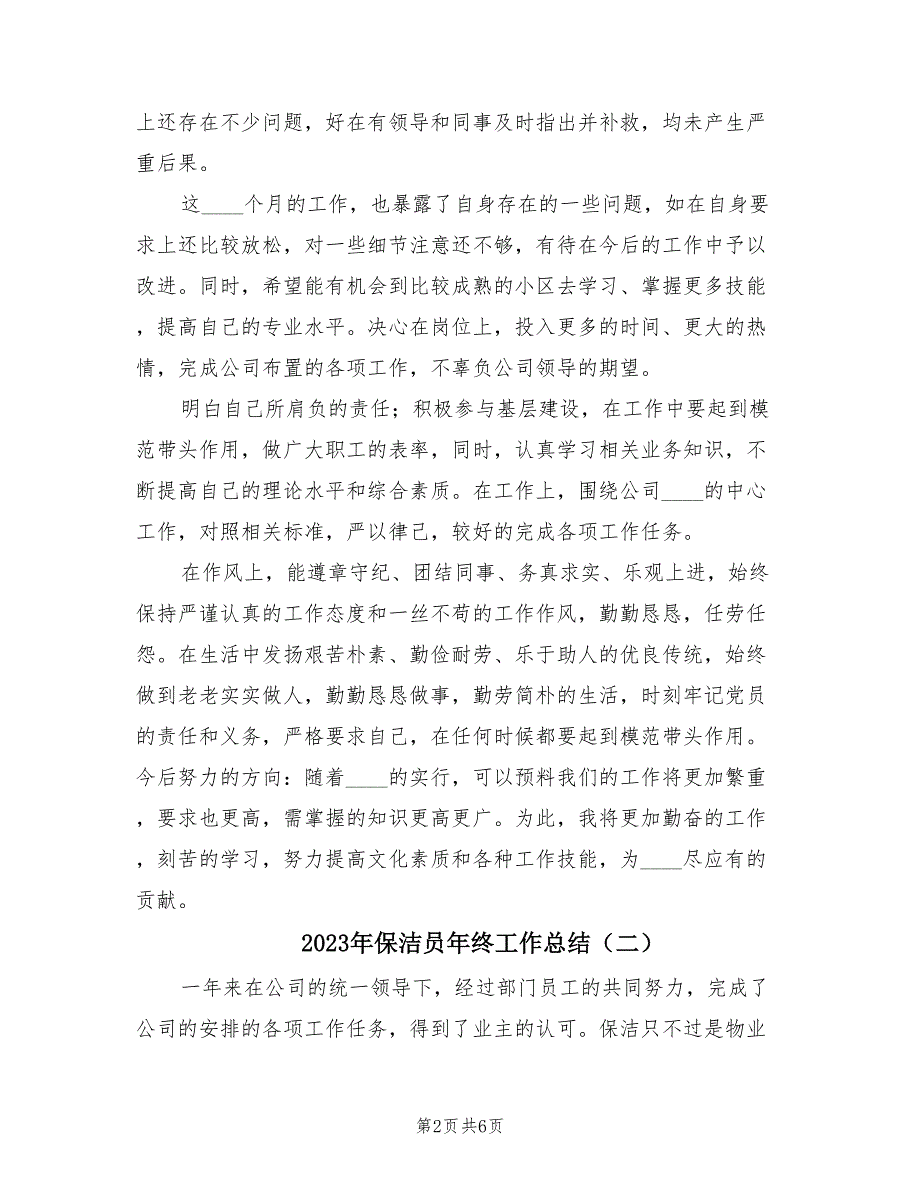 上还存在不少问题，好在有领导和同事及时指出并补救，均未产生严
重后果。
这____个月的工作，也暴露了自身存在的一些问题，如在自身要
求上还比较放松，对一些细节注意还不够，有待在今后的工作中予以
改进。同时，希望能有机会到比较成熟的小区去学习、掌握更多技能
，提高自己的专业水平。决心在岗位上，投入更多的时间、更大的热
情，完成公司布置的各项工作，不辜负公司领导的期望。
明白自己所肩负的责任；积极参与基层建设，在工作中要起到模
范带头作用，做广大职工的表率，同时，认真学习相关业务知识，不
断提高自己的理论水平和综合素质。在工作上，围绕公司____的中心
工作，对照相关标准，严以律己，较好的完成各项工作任务。
在作风上，能遵章守纪、团结同事、务真求实、乐观上进，始终
保持严谨认真的工作态度和一丝不苟的工作作风，勤勤恳恳，任劳任
怨。在生活中发扬艰苦朴素、勤俭耐劳、乐于助人的优良传统，始终
做到老老实实做人，勤勤恳恳做事，勤劳简朴的生活，时刻牢记党员
的责任和义务，严格要求自己，在任何时候都要起到模范带头作用。
今后努力的方向：随着____的实行，可以预料我们的工作将更加繁重
，要求也更高，需掌握的知识更高更广。为此，我将更加勤奋的工作
，刻苦的学习，努力提高文化素质和各种工作技能，为____尽应有的
贡献。
2023年保洁员年终工作总结（二）
一年来在公司的统一领导下，经过部门员工的共同努力，完成了
公司的安排的各项工作任务，得到了业主的认可。保洁只不过是物业
第2页 共6页